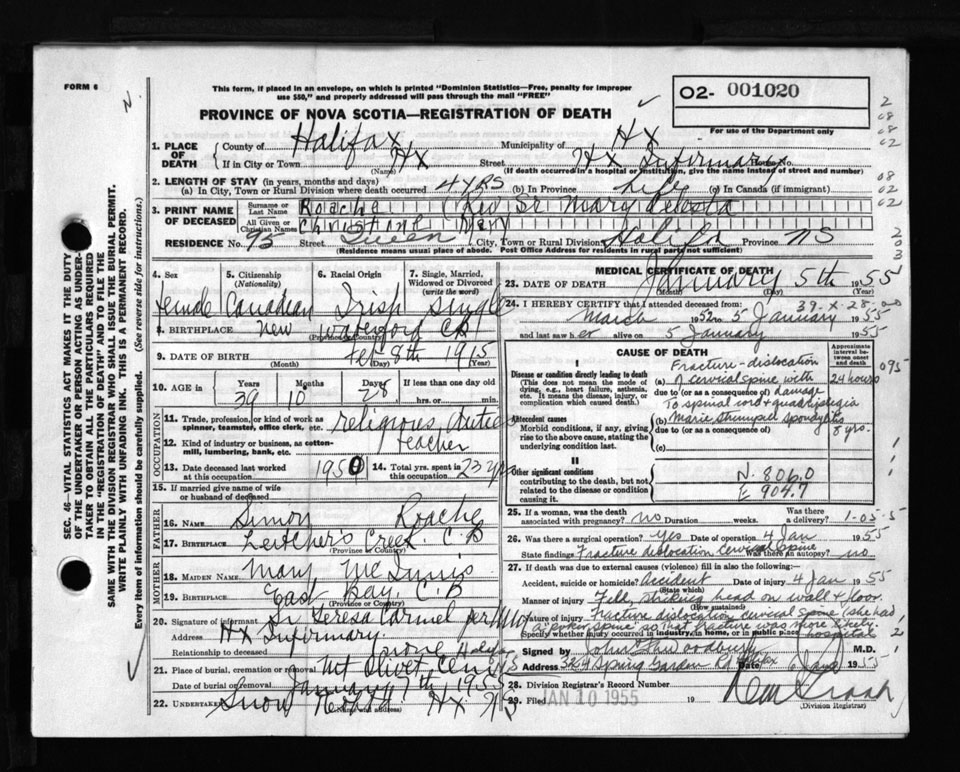 FORM 6
This form, if placed in an envelope, on which is printed "Dominion Statistics—Free, penalty for improper
use $50," and properly addressed will pass through the mail "FREE"
O2- 001020
PROVINCE OF NOVA SCOTIA—REGISTRATION OF DEATH
For use of the Department only
1. PLACE OF DEATH
County of Halifax Municipality of Hx
If in City or Town Hx Street Hx Infirmary House No.
(Name) (If death occurred in a hospital or institution, give the name instead of street and number)
2. LENGTH OF STAY (in years, months and days)
(a) In City, Town or Rural Division where death occurred 4 yrs (b) In Province Life (c) In Canada (if immigrant)
3. PRINT NAME OF DECEASED
Surname or Last Name Roache (Rev Sr Mary
All Given or Christian Names Mary
RESIDENCE No. 95 Street Queen City, Town or Rural Division Halifax Province NS
(Residence means usual place of abode. Post Office Address for residents in rural parts not sufficient)
4. Sex Female
5. Citizenship (Nationality) Canadian
6. Racial Origin Irish
7. Single, Married, Widowed or Divorced (write the word) Single
8. BIRTHPLACE New Waterford CB
(Province or Country)
9. DATE OF BIRTH Feb 8th 1915
(Month) (Day) (Year)
10. AGE in Years 39 Months 10 Days 28 If less than one day old
hrs. or min.
OCCUPATION
11. Trade, profession, or kind of work as spinner, teamster, office clerk, etc. religious duties
teacher
12. Kind of industry or business, as cotton-mill, lumbering, bank, etc.
13. Date deceased last worked at this occupation 1950
14. Total yrs. spent in this occupation 23 yrs
15. If married give name of wife or husband of deceased
FATHER
16. NAME Simon Roache
17. BIRTHPLACE Leitches Creek. C.B
(Province or Country)
MOTHER
18. MAIDEN NAME Mary McInnis
19. BIRTHPLACE East Bay, C.B
(Province or Country)
20. Signature of informant Sr Teresa Carmel per
Address Hx Infirmary.
Relationship to deceased none Halifax
21. Place of burial, cremation or removal Mt Olivet Cem NS
Date of burial or removal January 7th 1955
22. UNDERTAKER Snow Hx NS
(Name and address)
MEDICAL CERTIFICATE OF DEATH
23. DATE OF DEATH January 5th 1955
(Month) (Day)
39-X-28
24. I HEREBY CERTIFY that I attended deceased from
March 1952 to 5 January 1955
and last saw her alive on 5 January 1955
CAUSE OF DEATH
Approximate interval between onset and death
I
Disease or condition directly leading to death
(This does not mean the mode of dying, e.g., heart failure, asthenia, etc. It means the disease, injury, or complication which caused death.)
Fracture-dislocation
(a) of cervical spine with 24 hours
due to (or as a consequence of) damage
To spinal cord & quadriplegia
Antecedent causes
Morbid conditions, if any, giving rise to the above cause, stating the underlying condition last.
(b) Marie Strumpell Spondylitis
due to (or as a consequence of) 8 yrs.
(c)
II
Other significant conditions
contributing to the death, but not related to the disease or condition causing it.
N. 806.0
E 904.7
25. If a woman, was the death associated with pregnancy? no Duration weeks. Was there a delivery?
26. Was there a surgical operation? yes Date of operation 4 Jan 1955
State findings Fracture dislocation cervical spine Was there an autopsy? no
27. If death was due to external causes (violence) fill in also the following:—
Accident, suicide or homicide? Accident Date of injury 4 Jan 1955
(State which)
Manner of injury Fell, striking head on wall & floor
(How sustained)
Nature of injury Fracture dislocation cervical spine (she had
a "poker spine" so that fracture was more likely.
Specify whether injury occurred in industry, in home, or in public place hospital
Signed by John Woodbury M.D.
Address Spring Garden Rd Halifax Date 6 Jan 1955
28. Division Registrar's Record Number
29. Filed JAN 10 1955 19
(Division Registrar)
SEC. 46—VITAL STATISTICS ACT MAKES IT THE DUTY
OF THE UNDERTAKER OR PERSON ACTING AS UNDER-
TAKER TO OBTAIN ALL THE PARTICULARS REQUIRED
IN THE "REGISTRATION OF DEATH" AND TO FILE THE
SAME WITH THE DIVISION REGISTRAR WHO SHALL ISSUE THE BURIAL PERMIT.
WRITE PLAINLY WITH UNFADING INK. THIS IS A PERMANENT RECORD.
Every item of information should be carefully supplied. (See reverse side for instructions.)